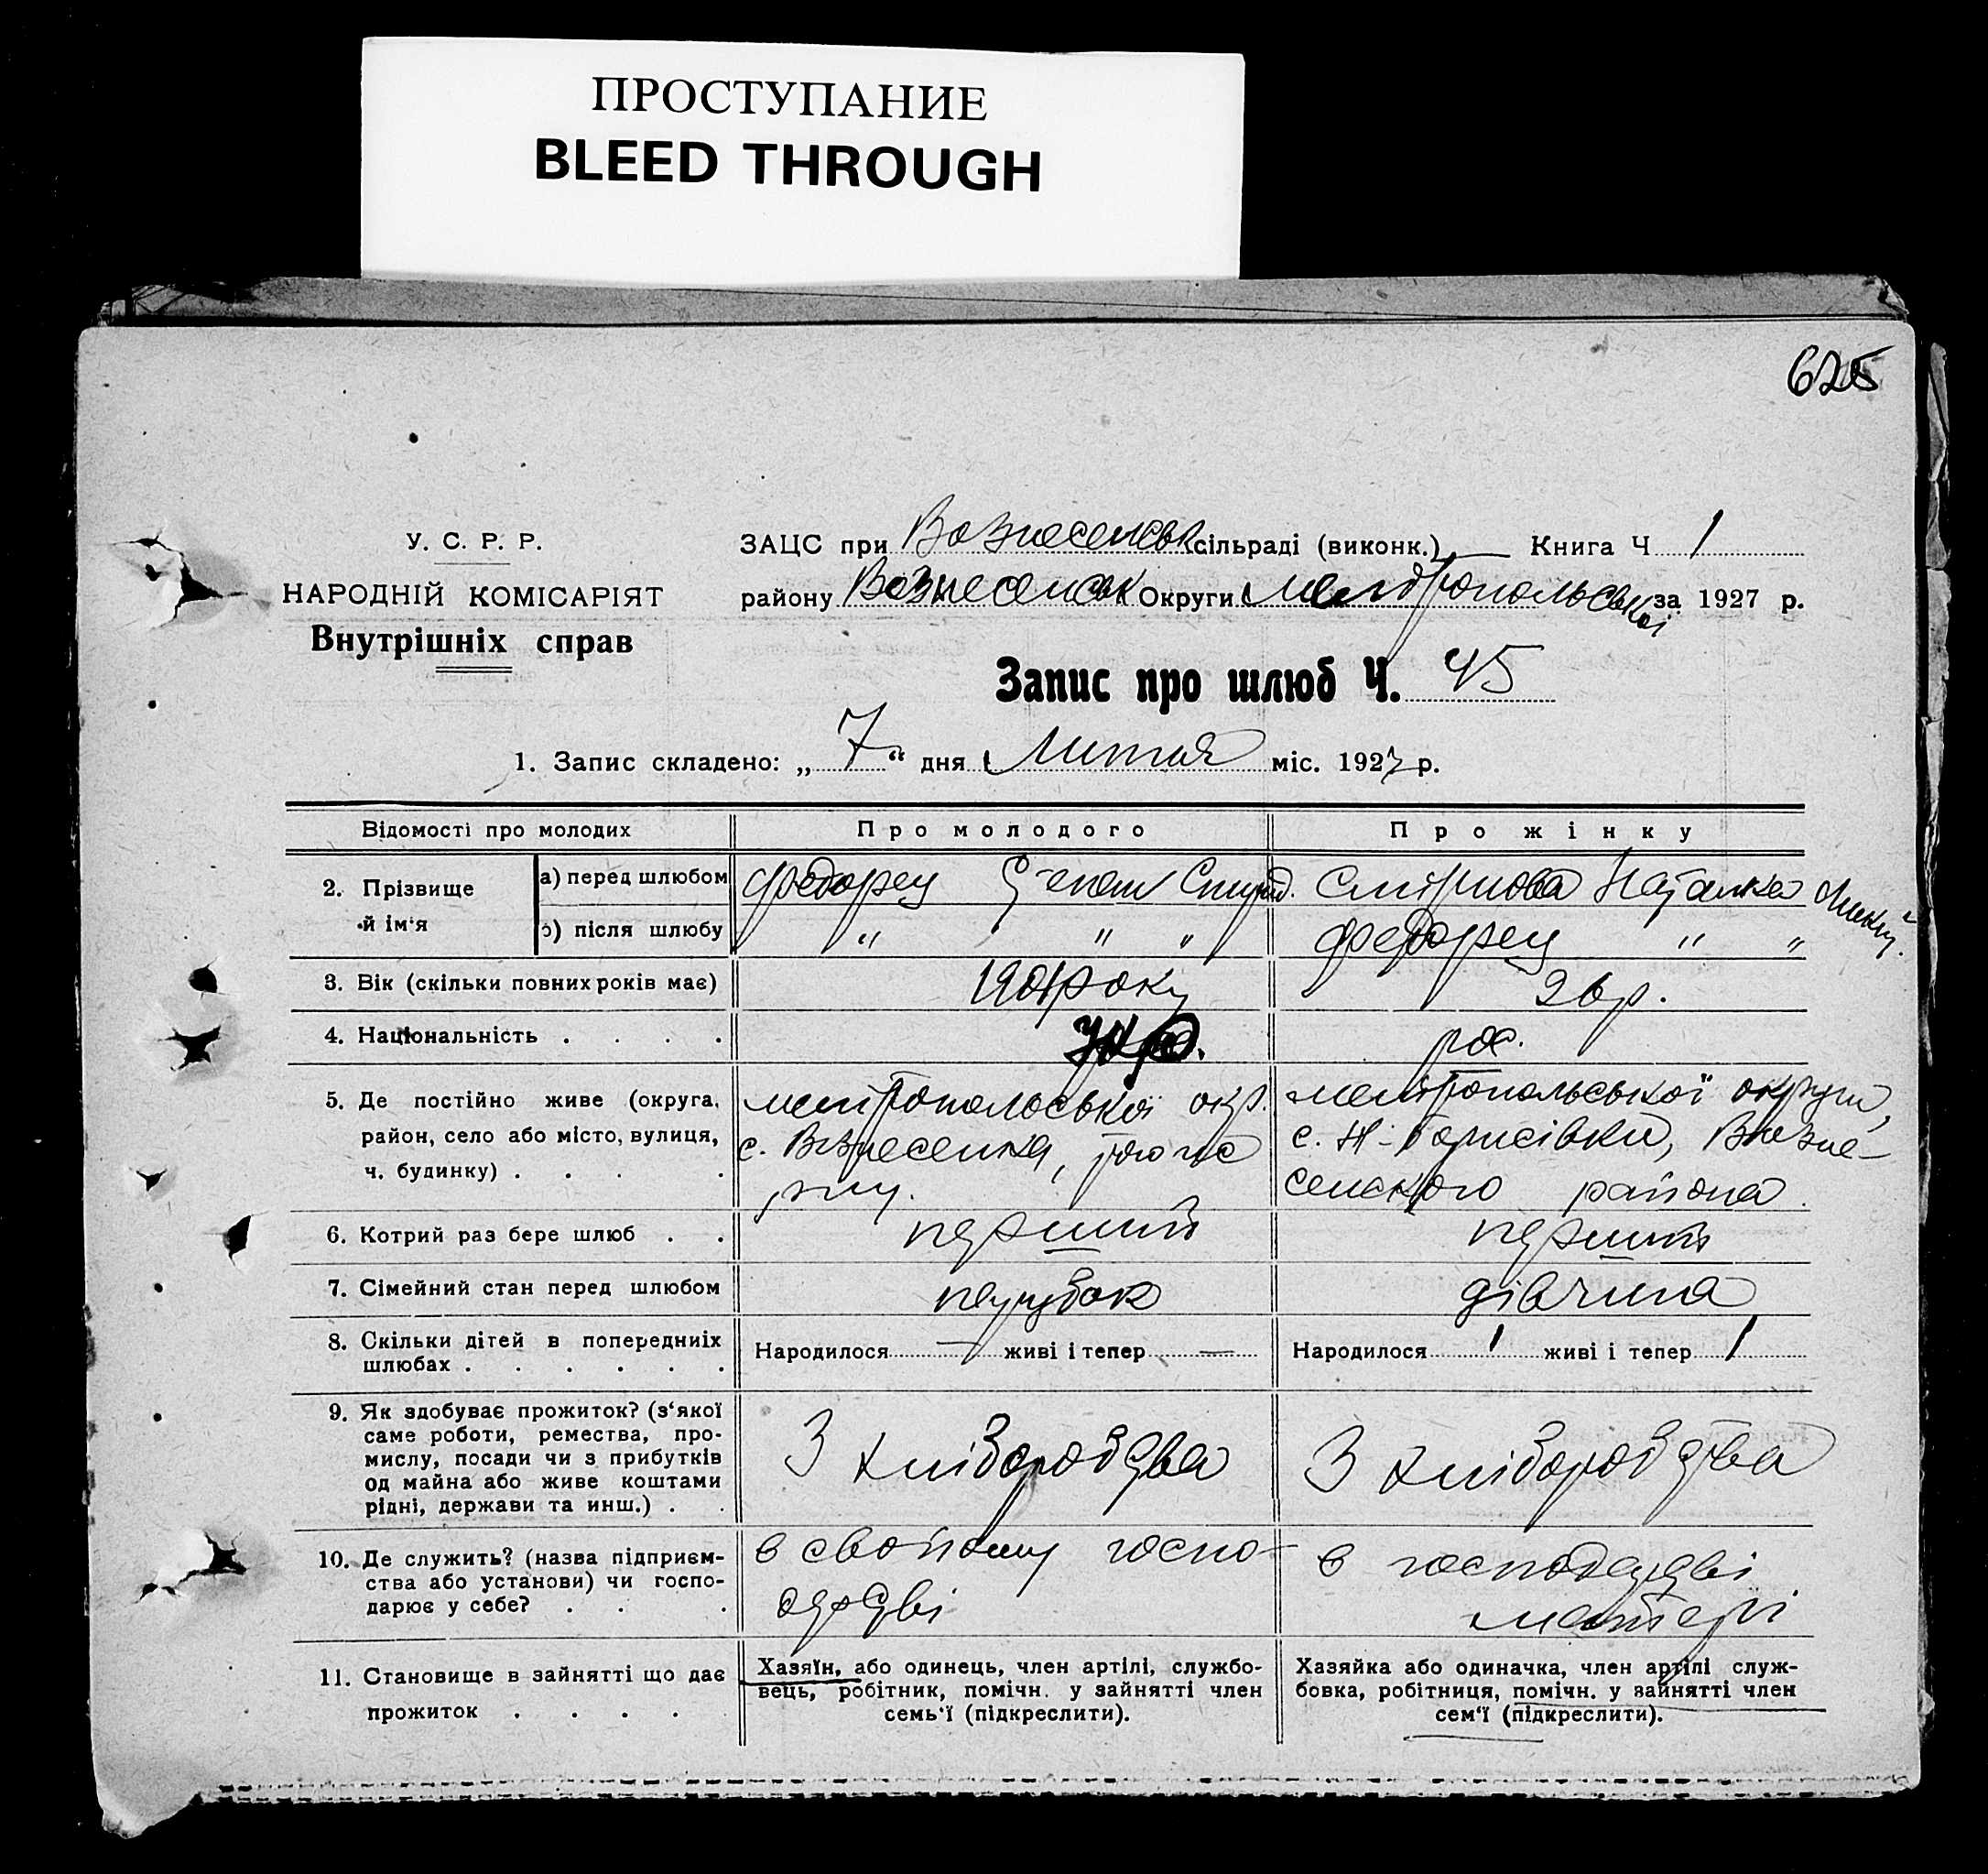 ПРОСТУПАНИЕ
BLEED THROUGH
625
У. С. Р. Р.
НАРОДНІЙ КОМІСАРІЯТ
Внутрішніх справ
ЗАЦС при Вознесенськ сільраді (виконк.) — Книга Ч 1
району Вознесенськ Округи Мелітропольської за 1927 р.
Запис про шлюб Ч. 45
1. Запис складено: „ 7 “ дня Лютня міс. 1927 р.
Відомості про молодих Про молодого Про жінку
2. Прізвище й ім‘я
а) перед шлюбом Федорец Степан Спирид. Смирнова Наталка Микит.
б) після шлюбу " " " Федорец " "
3. Вік (скільки повних років має) 1904 року 26 р.
4. Національність . . . . укр. рос.
5. Де постійно живе (округа, район, село або місто, вулиця, ч. будинку) . . . .
мелітропольської окр.
с. Вознесенка, того ж
р-ну.
мелітропольської округи,
с. Н-Борисівки, Возне-
сенського района.
6. Котрий раз бере шлюб . . перший перший
7. Сімейний стан перед шлюбом парубок дівчина
8. Скільки дітей в попередниіх
шлюбах . . . . . .
Народилося — живі і тепер —
Народилося 1 живі і тепер 1
9. Як здобуває прожиток? (з‘якої
саме роботи, ремества, про-
мислу, посади чи з прибутків
од майна або живе коштами
рідні, держави та инш.) . .
З хліборобства
З хліборобства
10. Де служить? (назва підприєм-
ства або установи) чи госпо-
дарює у себе? . . .
в свойому госпо-
дарстві
в господарстві
матері
11. Становище в зайнятті що дає
прожиток . . . .
Хазяїн, або одинець, член артілі, службо-
вець, робітник, помічн. у зайнятті член
семь‘ї (підкреслити).
Хазяйка або одиначка, член артілі служ-
бовка, робітниця, помічн. у зайнятті член
сем‘ї (підкреслити).